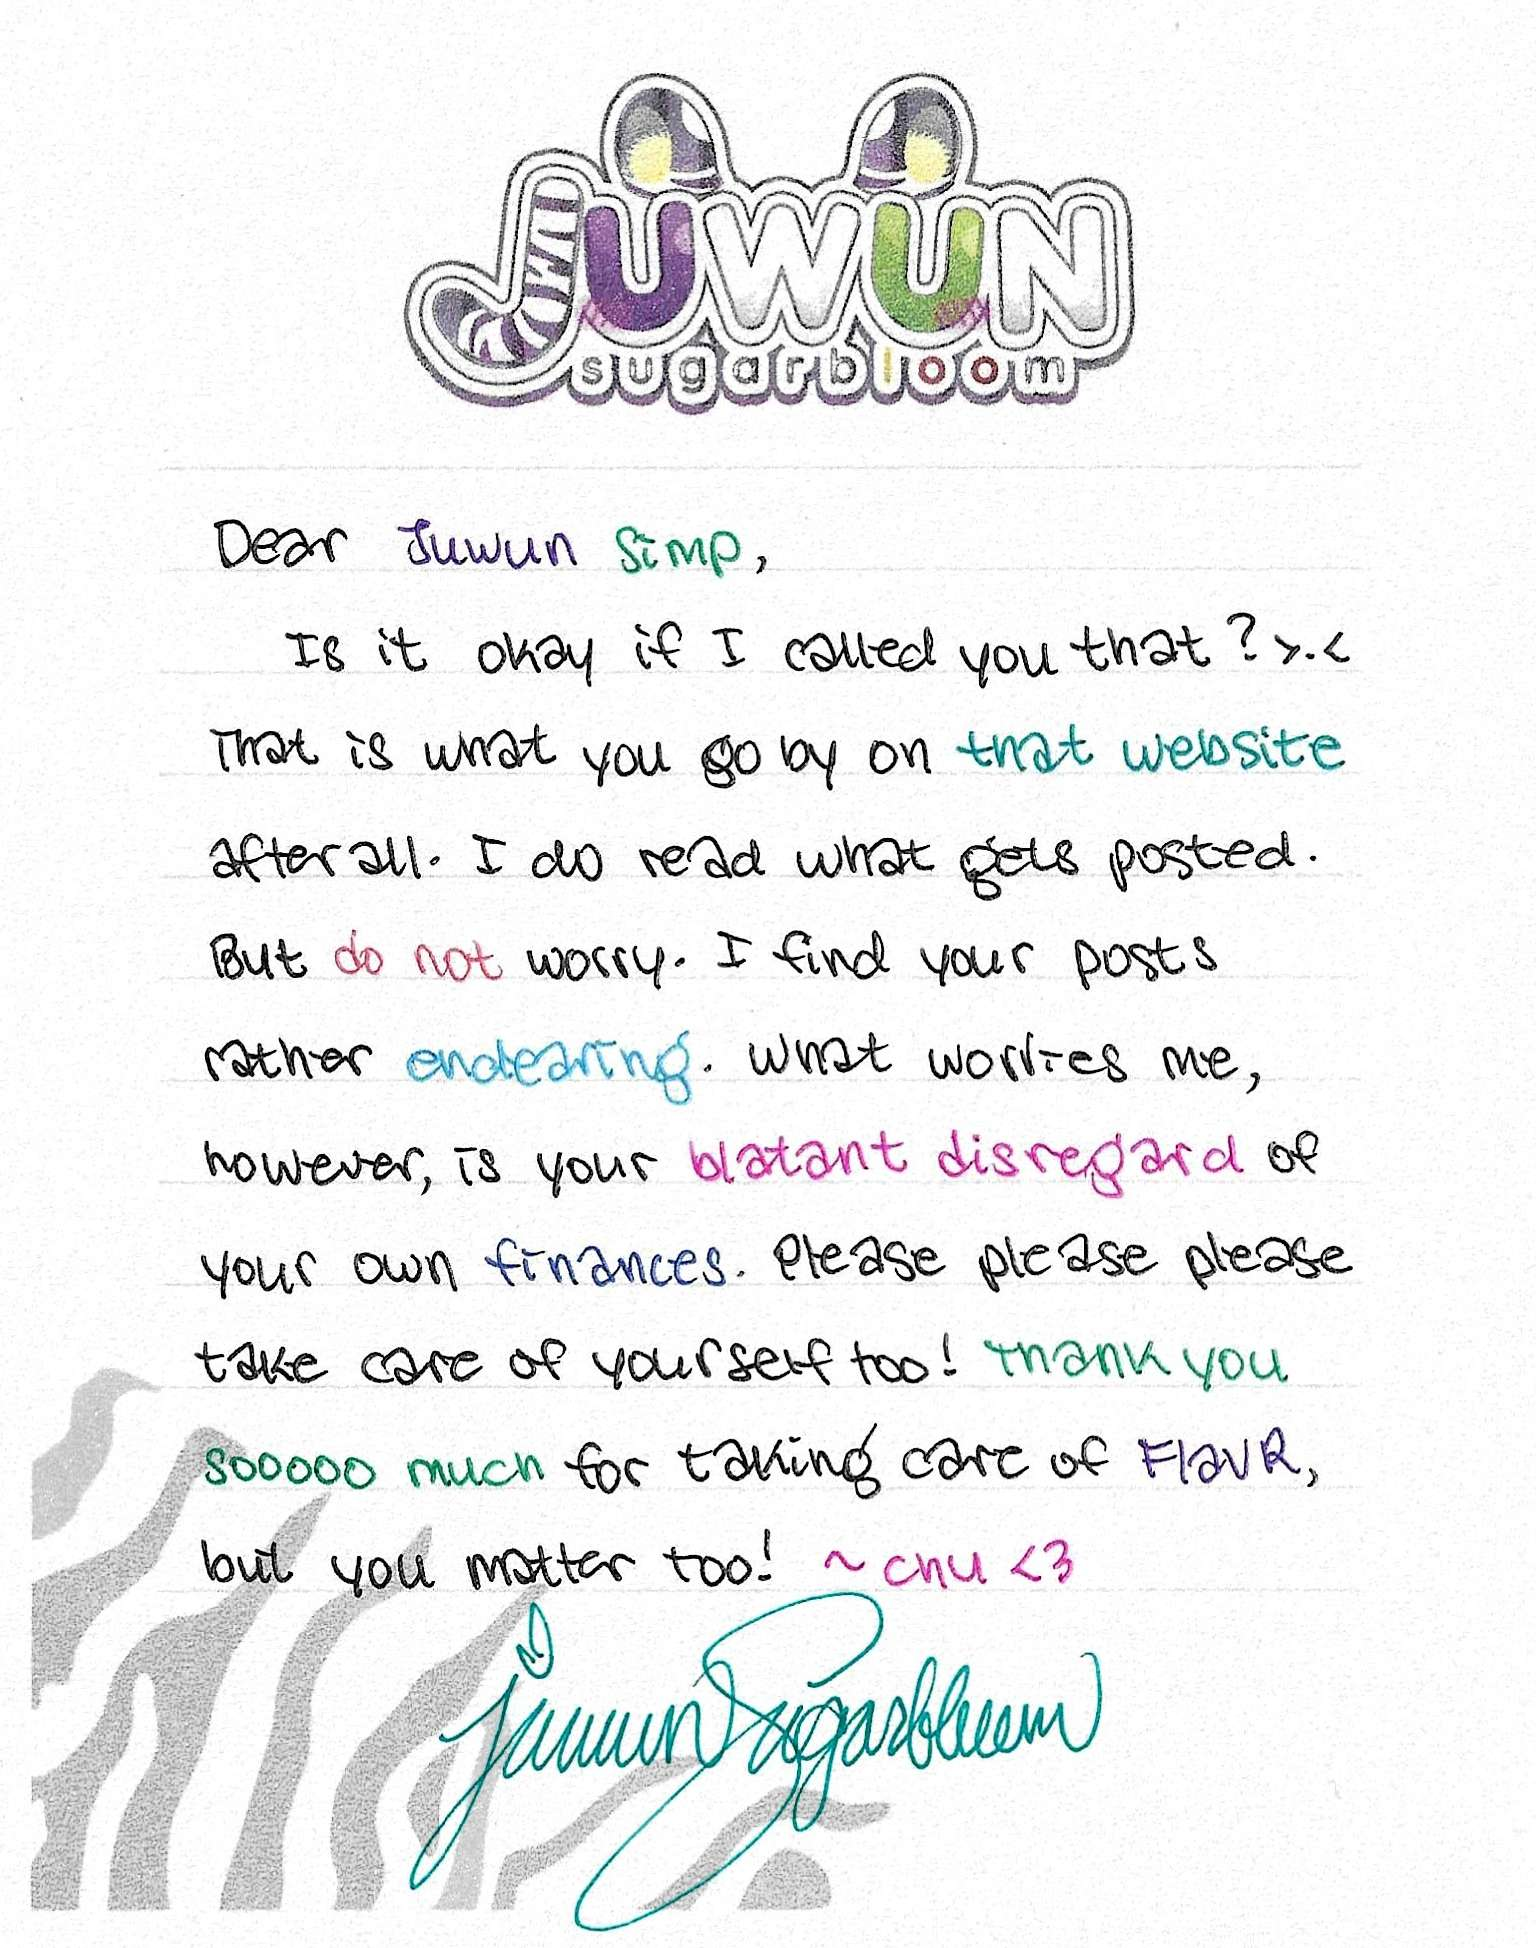 JUWUN
sugarbloom
Dear Juwun Simp,
Is it okay if I called you that? >.<
That is what you go by on that website
after all. I do read what gets posted.
But do not worry. I find your posts
rather endearing. What worries me,
however, is your blatant disregard of
your own finances. Please please please
take care of yourself too! Thank you
sooooo much for taking care of FlavR,
but you matter too! ~chu <3
Juwun Sugarbloom